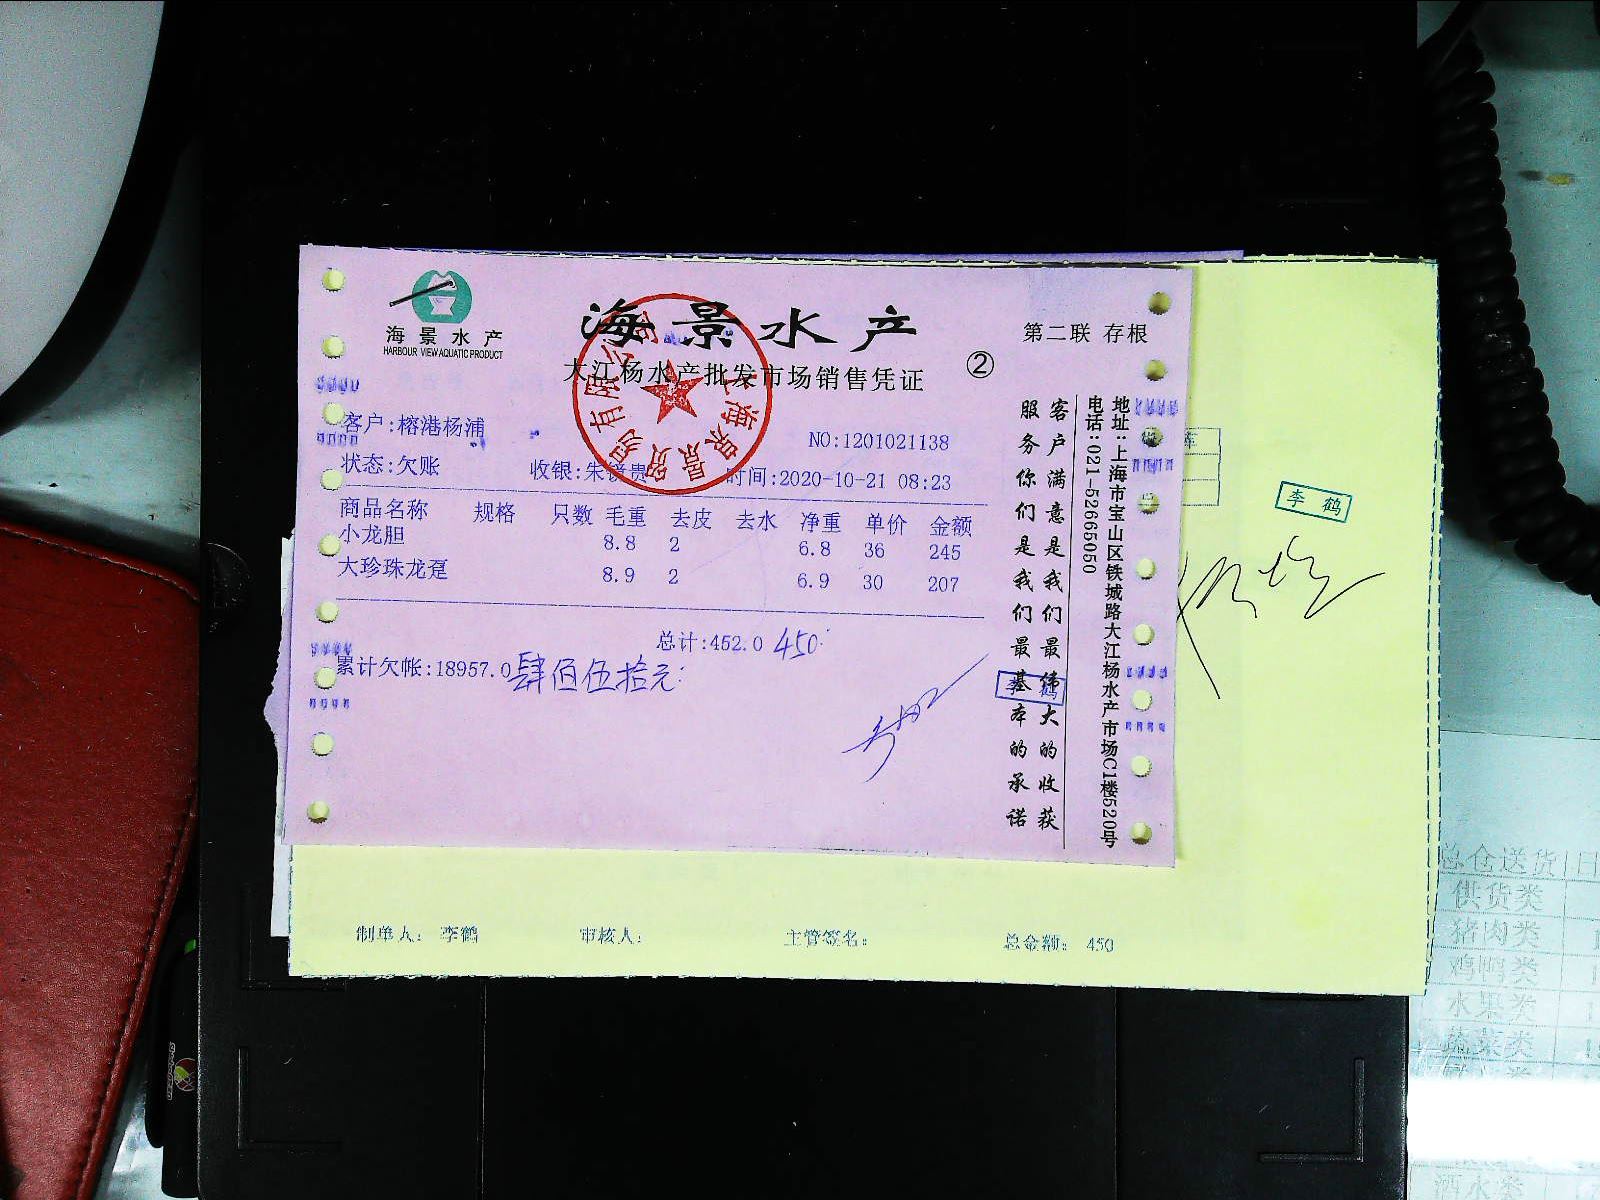 海景水产
HARBOUR VIEW AQUATIC PRODUCT
海景水产
大江杨水产批发市场销售凭证
②
第二联 存根
客户:榕港杨浦
NO:1201021138
状态:欠账
收银:朱镜贵
时间:2020-10-21 08:23
商品名称 规格 只数 毛重 去皮 去水 净重 单价 金额
小龙胆 8.8 2 6.8 36 245
大珍珠龙趸 8.9 2 6.9 30 207
总计:452.0 450
累计欠帐:18957.0 肆佰伍拾元
客户满意是我们最伟大的收获
服务你们是我们最基本的承诺
地址:上海市宝山区铁城路大江杨水产市场C1楼520号
电话:021-52665050
李鹤
李鹤
制单人: 李鹤 审核人: 主管签名: 总金额: 450
总仓送货
供货类
猪肉类
鸡鸭类
水果类
蔬菜类
酒水类